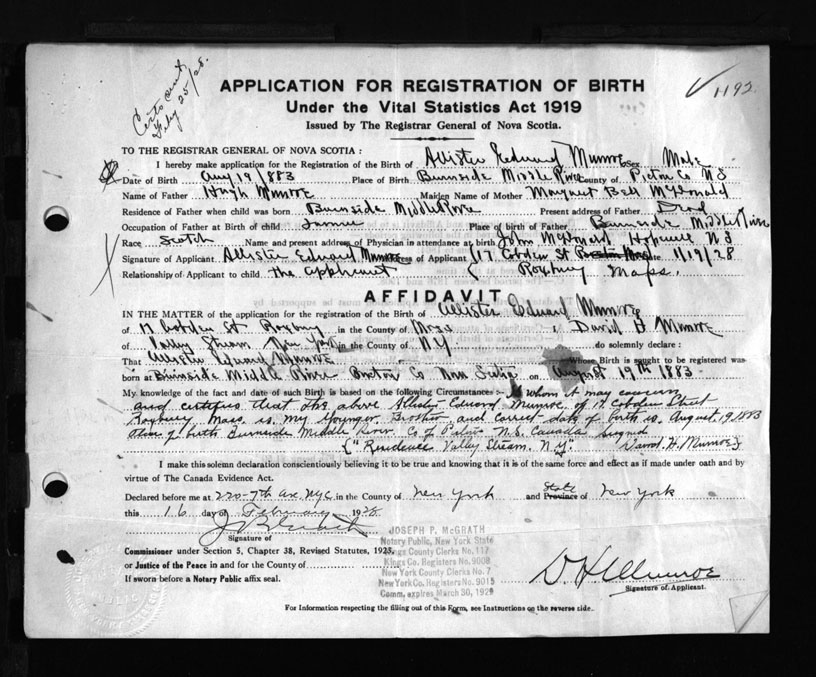 Certs sent
Feby 25/28.
1192
APPLICATION FOR REGISTRATION OF BIRTH
Under the Vital Statistics Act 1919
Issued by The Registrar General of Nova Scotia.
TO THE REGISTRAR GENERAL OF NOVA SCOTIA :
I hereby make application for the Registration of the Birth of Allister Edward Munroe Sex Male
Date of Birth Aug 19/1883 Place of Birth Burnside Middle River County of Pictou Co N S
Name of Father Hugh Munroe Maiden Name of Mother Margaret Bell McDonald
Residence of Father when child was born Burnside Middle River Present address of Father Dead
Occupation of Father at Birth of child Farmer Place of birth of Father Burnside Middle River
Race Scotch Name and present address of Physician in attendance at birth John Hopewell N S
Signature of Applicant Allister Edward Munroe Address of Applicant 17 Cobden St 1/19/28
Relationship of Applicant to child the applicant Roxbury Mass.
AFFIDAVIT
IN THE MATTER of the application for the registration of the Birth of Allister Edward Munroe
of 17 Cobden St Roxbury in the County of Mass I, David H Munroe
of Valley Stream New York in the County of N Y do solemnly declare :
That Allister Edward Munroe Whose Birth is sought to be registered was
born at Burnside Middle River Pictou Co Nova Scotia on August 19th 1883
My knowledge of the fact and date of such Birth is based on the following Circumstances :— whom it may concern
and certifies that the above Allister Edward Munroe of 17 Cobden Street
Roxbury Mass. is my Younger Brother and correct date of birth is August 19 1883
Place of birth Burnside Middle River Co of Pictou N.S. Canada signed
"Residence Valley Stream. N.Y." David H. Munroe
I make this solemn declaration conscientiously believing it to be true and knowing that it is of the same force and effect as if made under oath and by
virtue of The Canada Evidence Act.
Declared before me at 220-7th Ave NYC in the County of New York and State Province of New York
this 16 day of February 1928
Signature of
Commissioner under Section 5, Chapter 38, Revised Statutes, 1923,
or Justice of the Peace in and for the County of
If sworn before a Notary Public affix seal.
JOSEPH P. McGRATH
Notary Public, New York State
Kings County Clerks No. 117
Kings Co. Registers No. 9008
New York County Clerks No. 7
New York Co. Registers No. 9015
Comm. expires March 30, 1929
D. H. Munroe
Signature of Applicant.
For Information respecting the filling out of this Form, see Instructions on the reverse side.